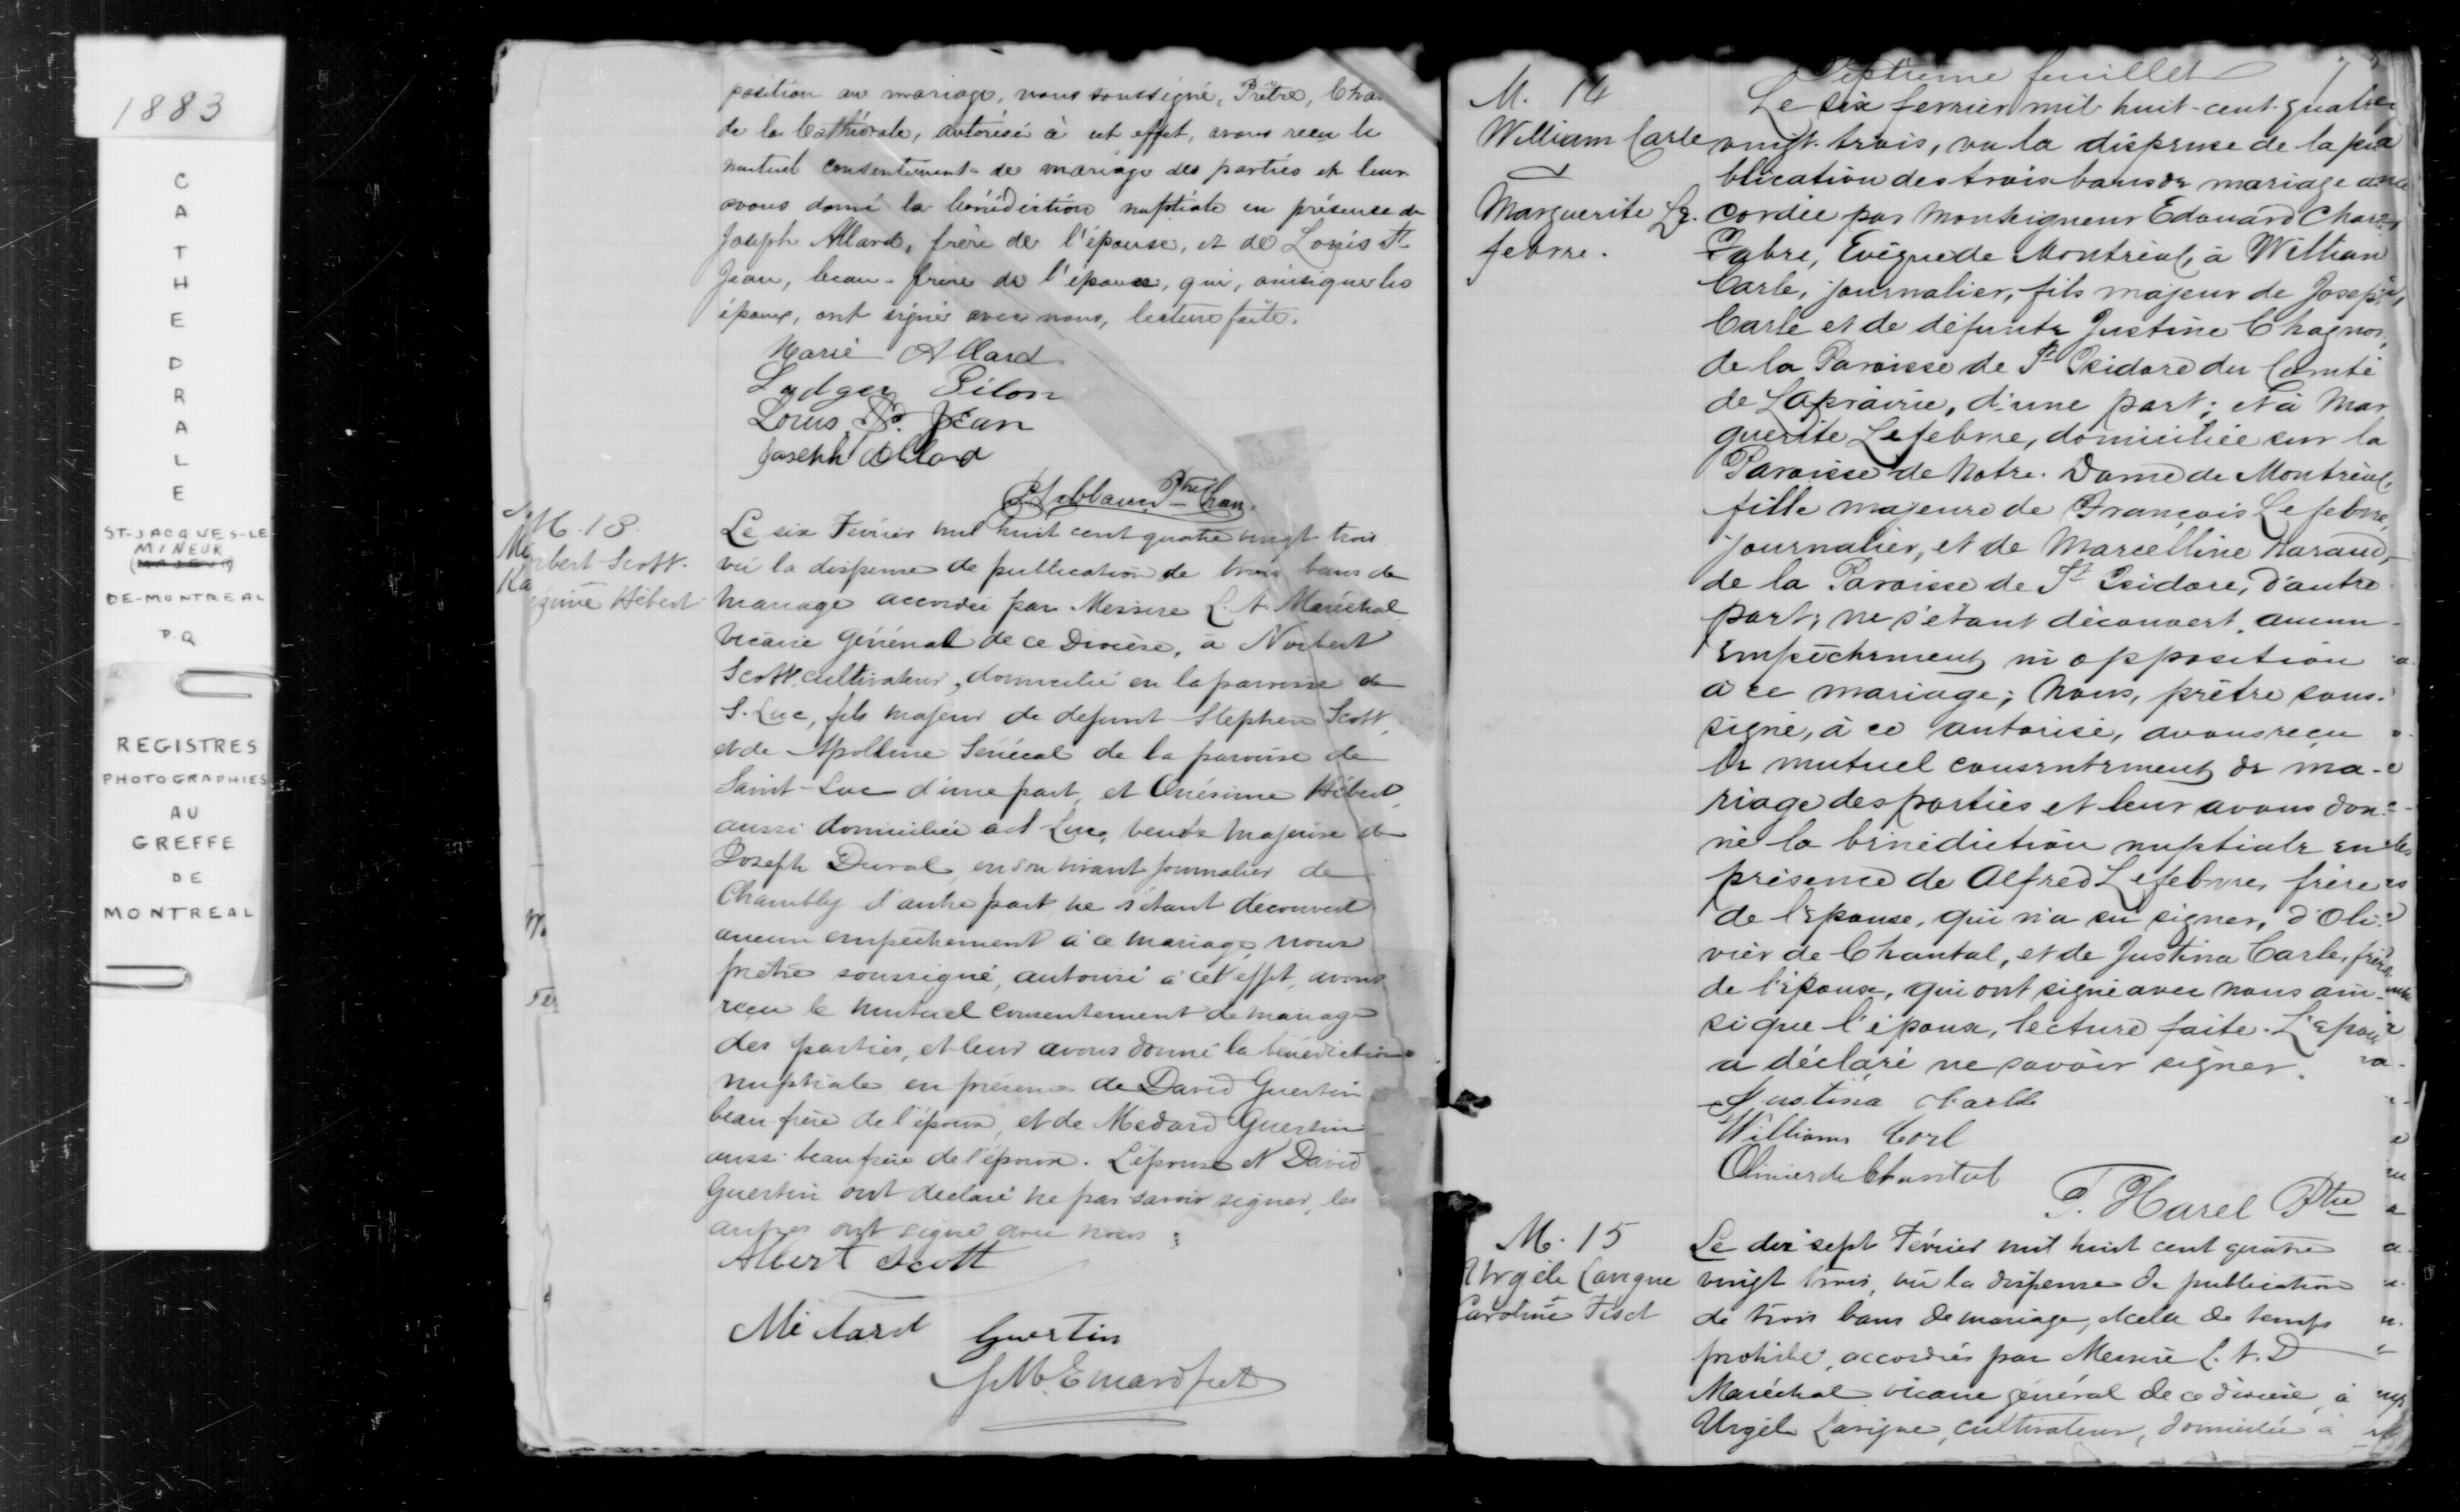 1883
CATHEDRALE
ST-JACQUES-LE
MINEUR
(MAJEUR)
DE-MONTREAL
P.Q
REGISTRES
PHOTOGRAPHIES
AU
GREFFE
DE
MONTREAL
position au mariage, nous soussigné, Prêtre, Cha
de la Cathédrale, autorisé à cet effet, avons reçu le
mutuel consentement de mariage des parties et leur
avons donné la bénédiction nuptiale en présence de
Joseph Allard, frère de l'épouse, et de Louis St
Jean, beau-frère de l'épouse, qui, ainsi que les
époux, ont signé avec nous, lecture faite.
Marie Allard
Ludger Pilon
Louis St. Jean
Joseph Allard
Ptre Chan.
M. 13.
Norbert Scott.
Onésime Hébert
Le six Février mil huit cent quatre vingt trois
vu la dispense de publication de trois bans de
mariage accordée par Messire L. A. Maréchal
vicaire Général de ce Diocèse, à Norbert
Scott cultivateur, domicilié en la paroisse de
S. Luc, fils majeur de defunt Stephen Scott,
et de Apolline Sénécal de la paroisse de
Saint-Luc d'une part, et Onésime Hébert,
aussi domiciliée à St Luc, veuve majeure de
Joseph Duval, en son vivant journalier de
Chambly d'autre part ne s'étant découvert
aucun empêchement à ce mariage, nous
prêtre soussigné, autorisé à cet effet, avons
reçu le mutuel consentement de mariage
des parties, et leur avons donné la bénédiction
nuptiale en présence de David Guertin
beau-frère de l'époux, et de Medard Guertin
aussi beau frère de l'époux. L'épouse et David
Guertin ont déclaré ne pas savoir signer, les
autres ont signé avec nous
Albert Scott
Médard Guertin
J. M. Emard ptre
Septième feuillet
M. 14
William Carle
Marguerite Le-
febvre.
Le six ferrier mil huit-cent-quatre
vingt-trois, vu la dispense de la pu
blication des trois bans de mariage ac
cordée par Monseigneur Edouard Charles
Fabre, Evêque de Montréal, à William
Carle, journalier, fils majeur de Joseph
Carle et de défunte Justine Chagnon,
de la Paroisse de St Isidore du Comté
de Laprairie, d'une part; et à Mar
guerite Lefebvre, domiciliée sur la
Paroisse de Notre-Dame de Montréal,
fille majeure de François Lefebvre,
journalier, et de Marcelline Naraud,
de la Paroisse de St Isidore, d'autre
part; ne s'étant découvert aucun
empêchement ni opposition
à ce mariage; Nous, prêtre sous-
signé, à ce autorisé, avons reçu
le mutuel consentement de ma-
riage des parties et leur avons don-
né la bénédiction nuptiale en
présence de Alfred Lefebvre, frère
de l'épouse, qui n'a su signer, d'Oli-
vier de Chantal, et de Justina Carle, frère
de l'épouse, qui ont signé avec nous ain-
si que l'époux, lecture faite. L'épouse
a déclaré ne savoir signer.
Justina Carle
William Corl
Olivier de Chantal
T. Harel Ptre
M. 15
Urgèle Lavigne
Caroline Fisct
Le dix sept Février mil huit cent quatre
vingt trois, vu la dispense de publication
de trois bans de mariage, et celle de temps
prohibé, accordées par Messire L. A. D
Maréchal vicaire général de ce diocèse, à
Urgèle Lavigne, cultivateur, domicilié à